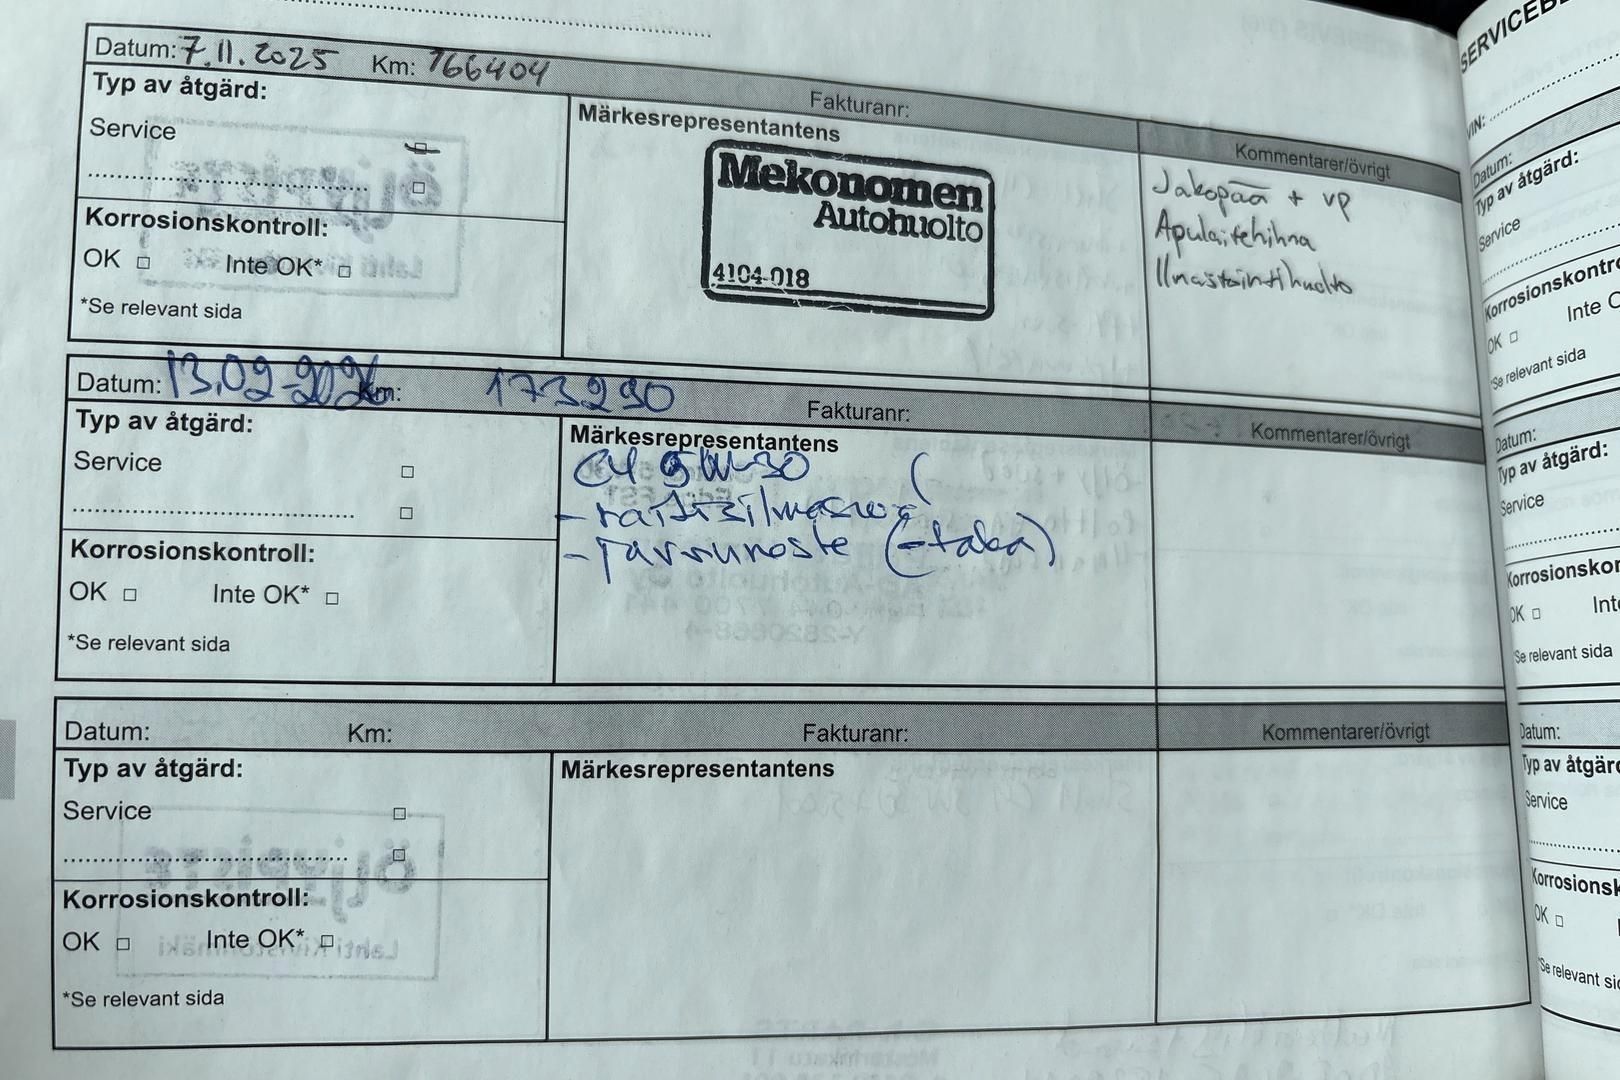 Datum: 7.11.2025 Km: 166404 Fakturanr:
Typ av åtgärd:
Service
Korrosionskontroll:
OK Inte OK*
*Se relevant sida
Märkesrepresentantens
Mekonomen
Autohuolto
4104-018
Kommentarer/övrigt
Jakopää + VP
Apulaitehihna
Ilmastointihuolto
Datum: 13.02.2026 Km: 173290 Fakturanr:
Typ av åtgärd:
Service
Korrosionskontroll:
OK Inte OK*
*Se relevant sida
Märkesrepresentantens
C4 5W-30 (
- raitisilmasuo
- jarruneste (-taka)
Kommentarer/övrigt
Datum: Km: Fakturanr:
Typ av åtgärd:
Service
Korrosionskontroll:
OK Inte OK*
*Se relevant sida
Märkesrepresentantens
Kommentarer/övrigt
VIN:
Datum:
Typ av åtgärd:
Service
OK Inte
*Se relevant sida
Datum:
Typ av åtgärd:
Service
OK
Se relevant sida
Datum:
Typ av
Service
OK
Se relevant